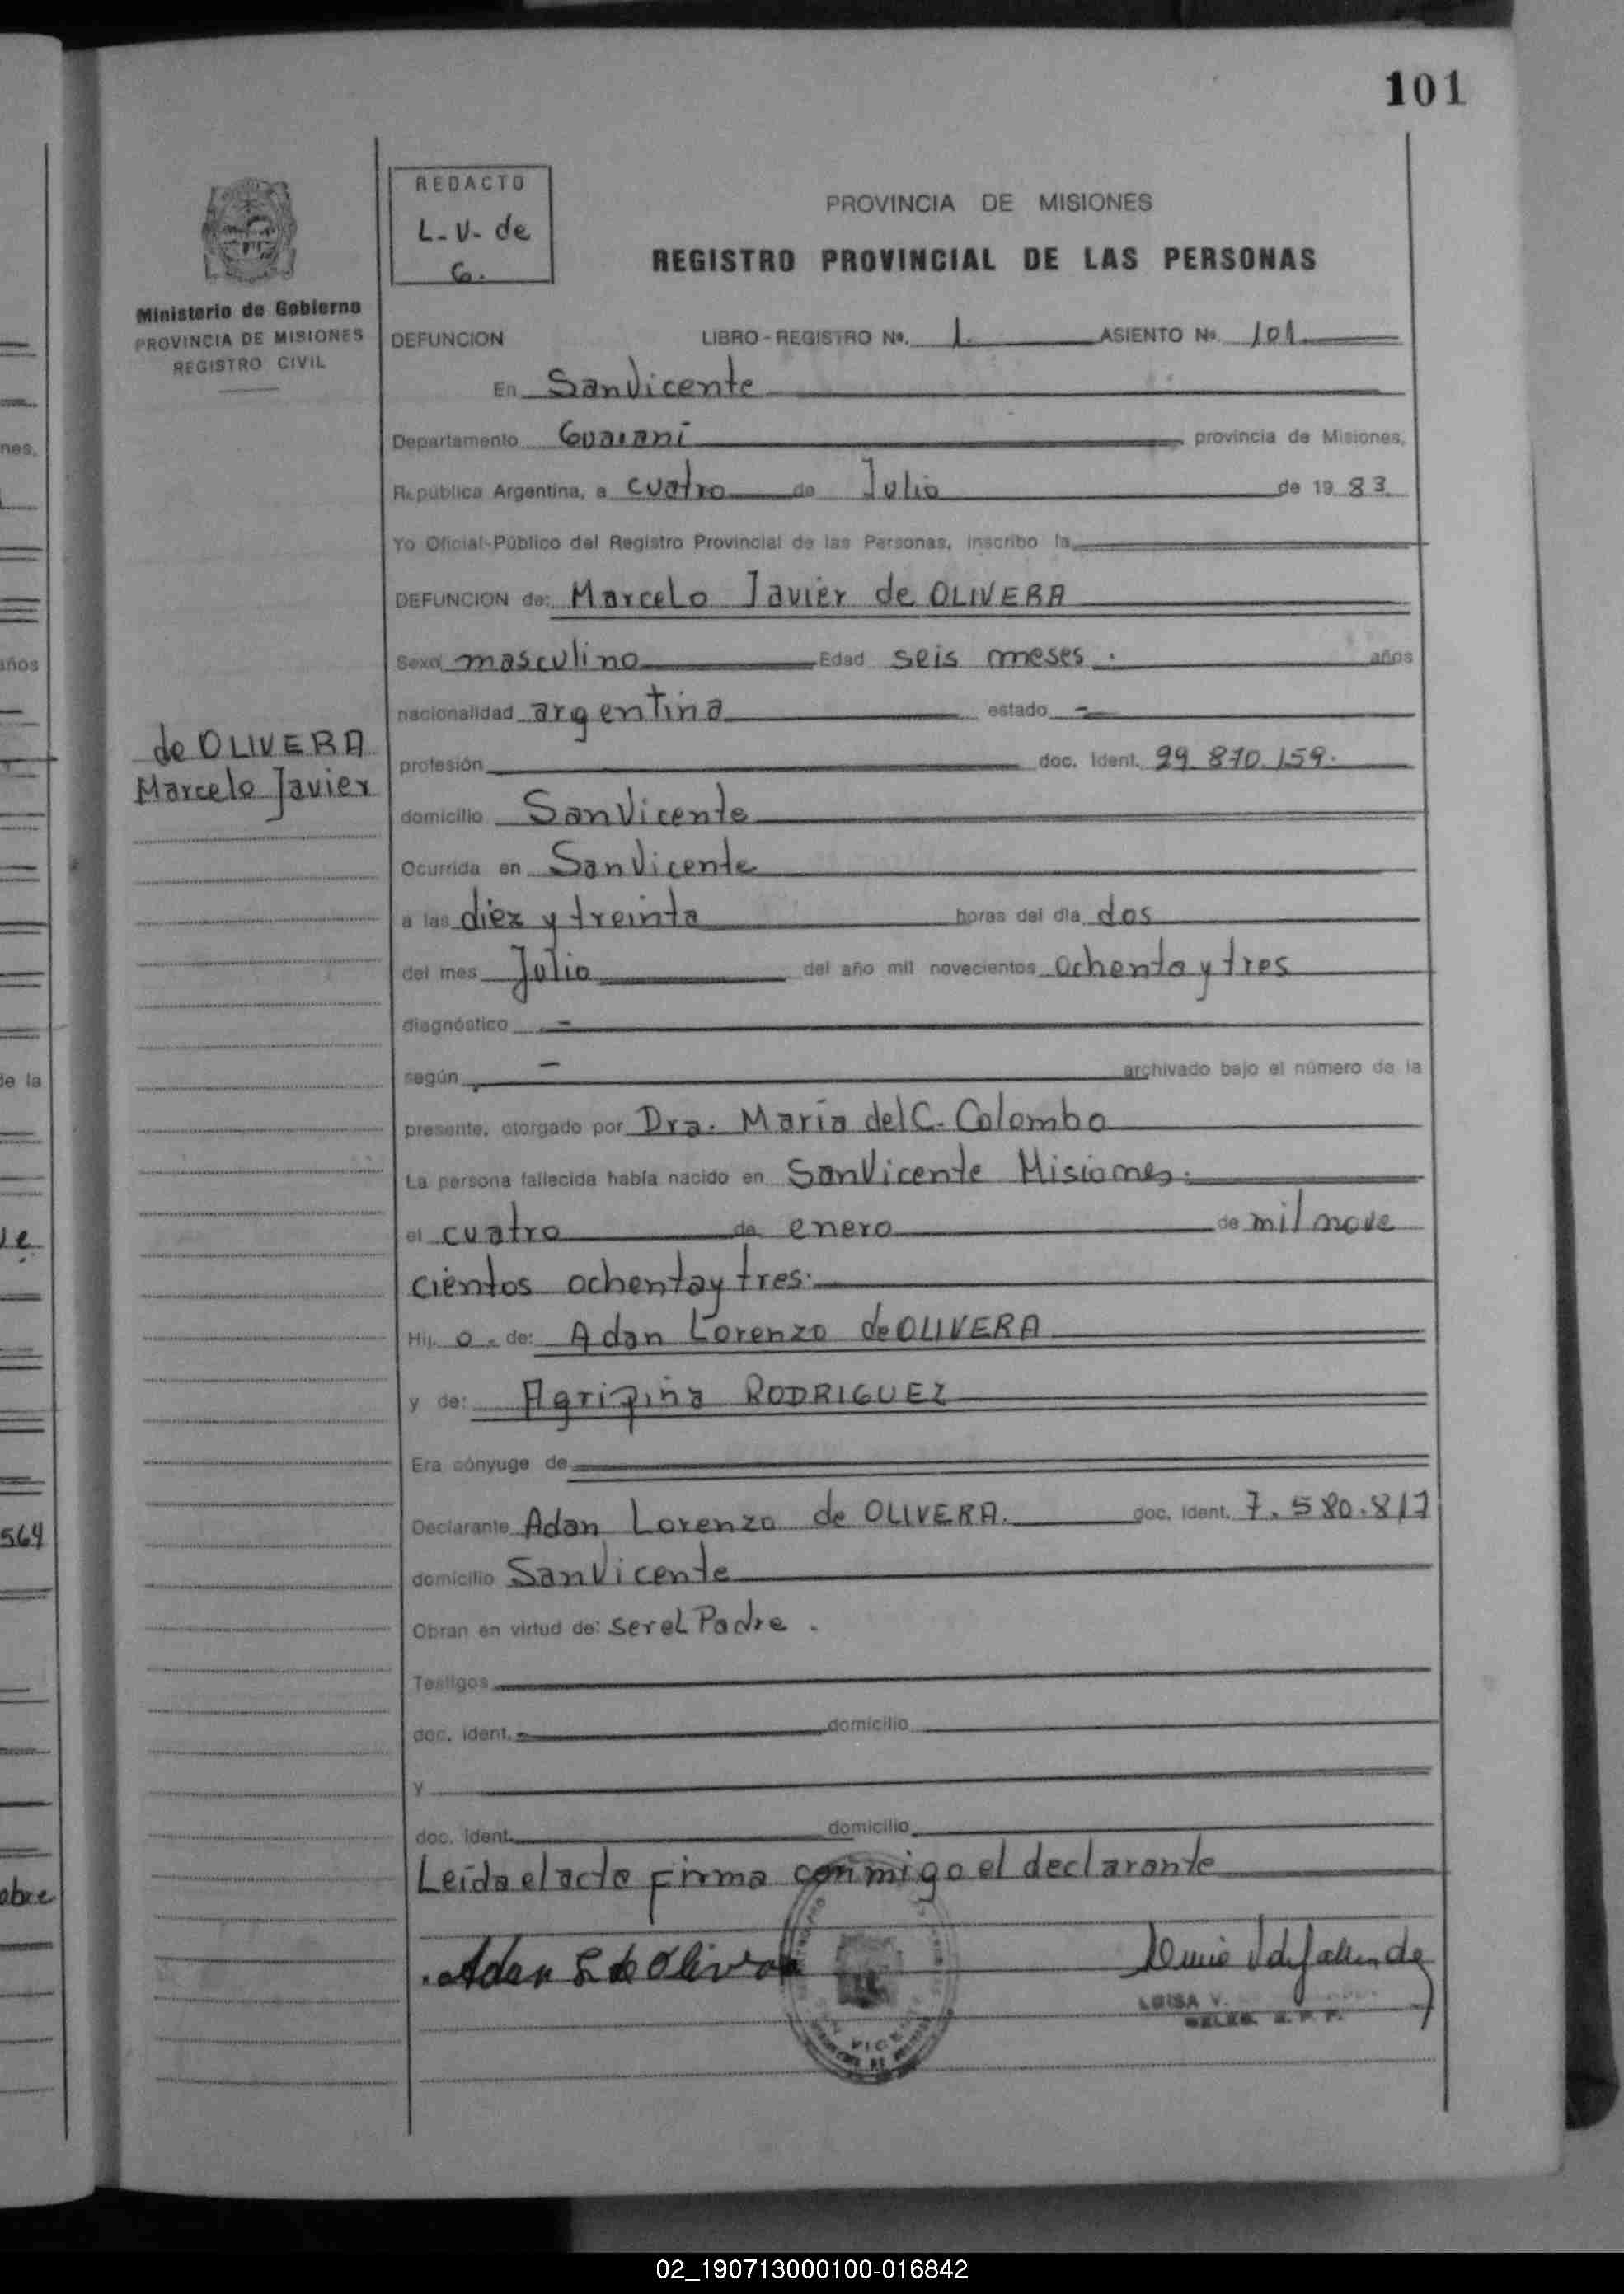 101
REDACTO
L-V- de
G.
PROVINCIA DE MISIONES
REGISTRO PROVINCIAL DE LAS PERSONAS
Ministerio de Gobierno
PROVINCIA DE MISIONES
REGISTRO CIVIL
DEFUNCION LIBRO-REGISTRO Nº. 1. ASIENTO Nº. 101.
En San Vicente
Departamento Guarani provincia de Misiones,
República Argentina, a cuatro de Julio de 19 83.
Yo Oficial-Público del Registro Provincial de las Personas, inscribo la
DEFUNCION de: Marcelo Javier de OLIVERA
Sexo masculino Edad seis meses. años
nacionalidad argentina estado -
de OLIVERA
Marcelo Javier
profesión doc. Ident. 29.870.159.
domicilio San Vicente
Ocurrida en San Vicente
a las diez y treinta horas del día dos
del mes Julio del año mil novecientos ochenta y tres
diagnóstico -
según - archivado bajo el número de la
presente, otorgado por Dra. Maria del C. Colombo
La persona fallecida había nacido en San Vicente Misiones.
el cuatro de enero de mil nove
cientos ochenta y tres.
Hij. o - de: Adan Lorenzo de OLIVERA
y de: Agripina RODRIGUEZ
Era cónyuge de
Declarante Adan Lorenzo de OLIVERA. doc. ident. 7.580.817
domicilio San Vicente
Obran en virtud de: ser el Padre.
Testigos
doc. ident. - domicilio
y
doc. ident. domicilio
Leída el acta firma conmigo el declarante
Adan L de Olivera
LUISA V.
nes.
años
de la
ve
564
obre
02_190713000100-016842